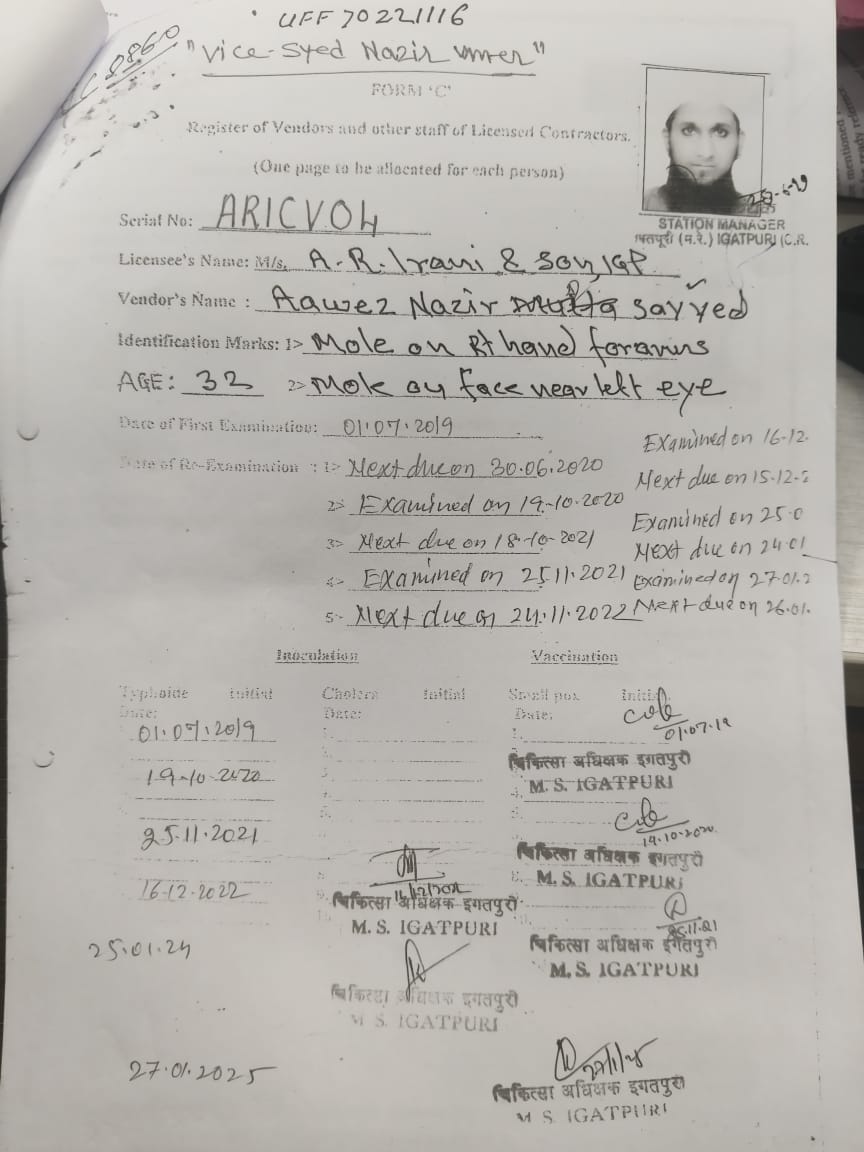 UFF 70221116
"Vice-Syed Nazir umer"
FORM 'C'
Register of Vendors and other staff of Licensed Contractors.
(One page to be allocated for each person)
28-6-19
STATION MANAGER
(म.रे.) IGATPURI (C.R.
Serial No: ARICV04
Licensee's Name: M/s. A.R. Irani & Son, IGP
Vendor's Name : Aawez Nazir Sayyed
Identification Marks: 1> Mole on Rt hand
AGE: 32 2> Mole on face near left eye
Date of First Examination: 01.07.2019
Date of Re-Examination : 1> Next due on 30.06.2020
2> Examined on 19.10.2020
3> Next due on 18.10.2021
4> Examined on 25.11.2021
5> Next due on 24.11.2022
Examined on 16-12.
Next due on 15-12-2
Examined on 25.0
Next due on 24.01
Examined on 27.01.2
Next due on 26.01.
Inoculation Vaccination
Typhoide Initial Cholera Initial Small pox Initial
Date: Date: Date:
01.07.2019
01.07.19
चिकित्सा अधिक्षक इगतपुरी
M. S. IGATPURI
19-10-2020
19.10.2020
चिकित्सा अधिक्षक इगतपुरी
M. S. IGATPURI
25.11.2021
25.11.21
चिकित्सा अधिक्षक इगतपुरी
M. S. IGATPURI
16-12-2022
चिकित्सा अधिक्षक इगतपुरी
M. S. IGATPURI
25.01.24
चिकित्सा अधिक्षक इगतपुरी
M S. IGATPURI
27.01.2025
चिकित्सा अधिक्षक इगतपुरी
M S. IGATPURI